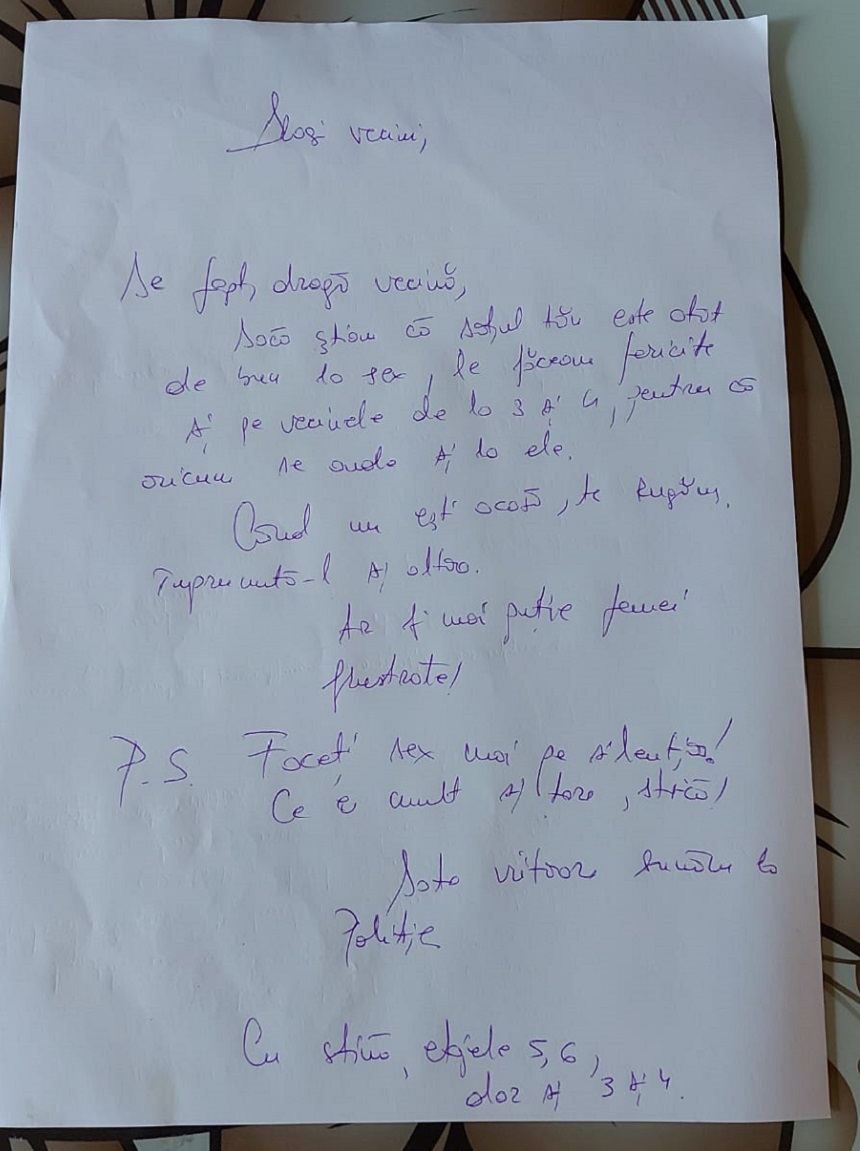 Dragi vecini,
De fapt, dragă vecină,
Dacă știam că soțul tău este atât
de bun la sex, le făceam fericite
și pe vecinele de la 3 și 4, pentru că
oricum se aude și la ele.
Când nu ești acasă, te rugăm,
împrumută-l și altora.
Ar fi mai puține femei
frustrate!
P.S. Faceți sex mai pe silențios!
Ce e mult și tare, strică!
Data viitoare sunăm la
Poliție
Cu stimă, etajele 5, 6,
dar și 3 și 4.